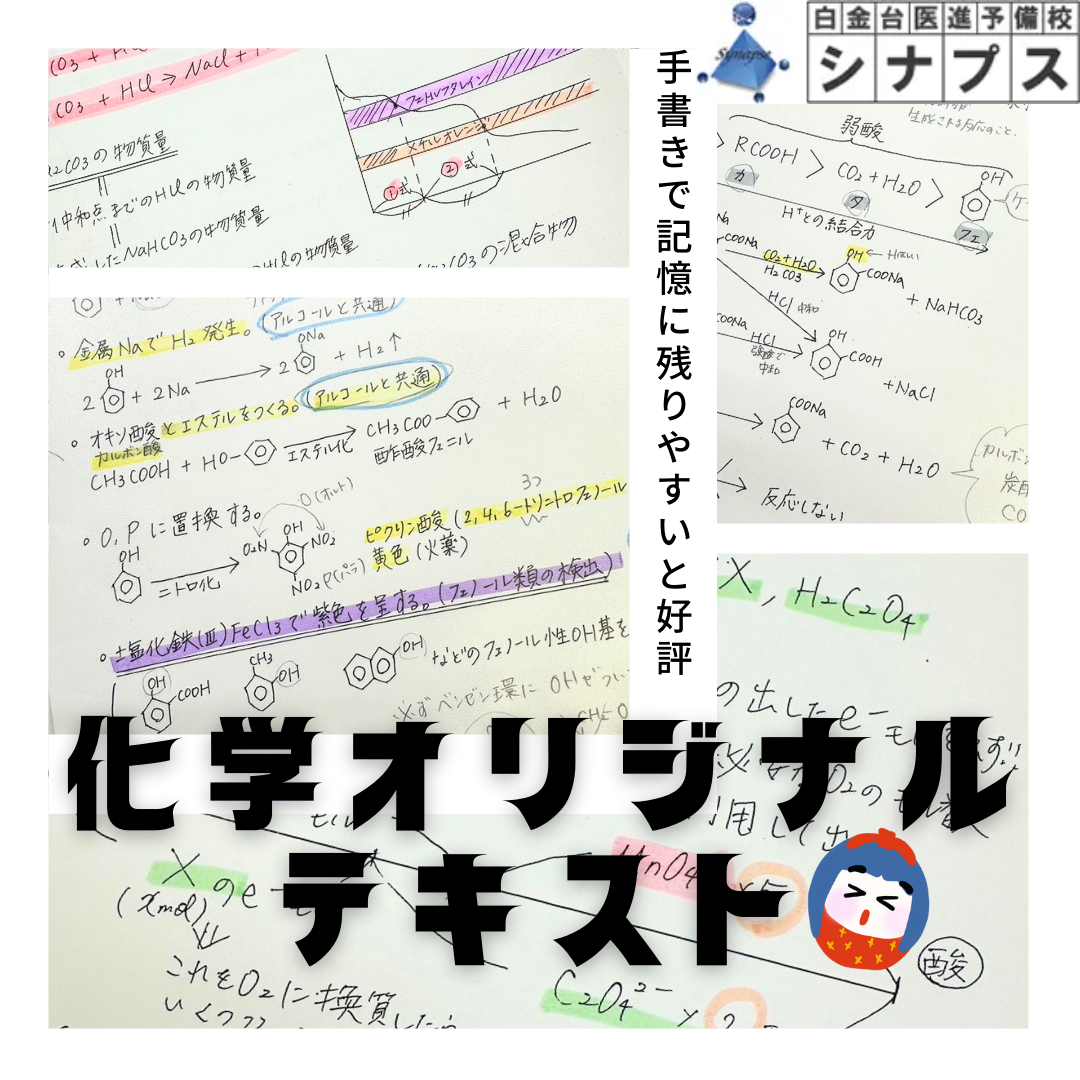 白金台医進予備校
シナプス
Synapse
手書きで記憶に残りやすいと好評
CO3 + HCl → NaCl +
フェノールフタレイン
メチルオレンジ
①式 ②式
2CO3の物質量
||
中和点までのHClの物質量
||
したNaHCO3の物質量
HClの物質量
CO3の混合物
生成される反応のこと。
弱酸
> RCOOH > CO2 + H2O > OH
カ タ フェ
H+との結合力
COONa CO2+H2O OH ← Hほしい
H2CO3 COONa + NaHCO3
HCl 中和
COONa HCl OH
強酸で COOH
中和 + NaCl
COONa
+ CO2 + H2O
反応しない
(アルコールと共通)
。金属NaでH2発生。
OH ONa
2 + 2Na → 2 + H2↑
。オキソ酸とエステルをつくる。(アルコールと共通)
カルボン酸
CH3COOH + HO- → CH3COO- + H2O
エステル化 酢酸フェニル
。O,Pに置換する。
O(オルト)
3つ
OH OH
O2N NO2
ニトロ化 NO2 P(パラ)
ピクリン酸(2,4,6-トリニトロフェノール
黄色(火薬)
。塩化鉄(Ⅲ)FeCl3で紫色を呈する。(フェノール類の検出)
OH COOH CH3 OH OH などのフェノール性OH基を
※必ずベンゼン環にOHがつい
X, H2C2O4
の出したe-
O2の
用して出
化学オリジナル
テキスト
Xのe-
(xmol)
これをO2に換算したら
いくつ
MnO4
×5
C2O4²⁻ ×2
酸